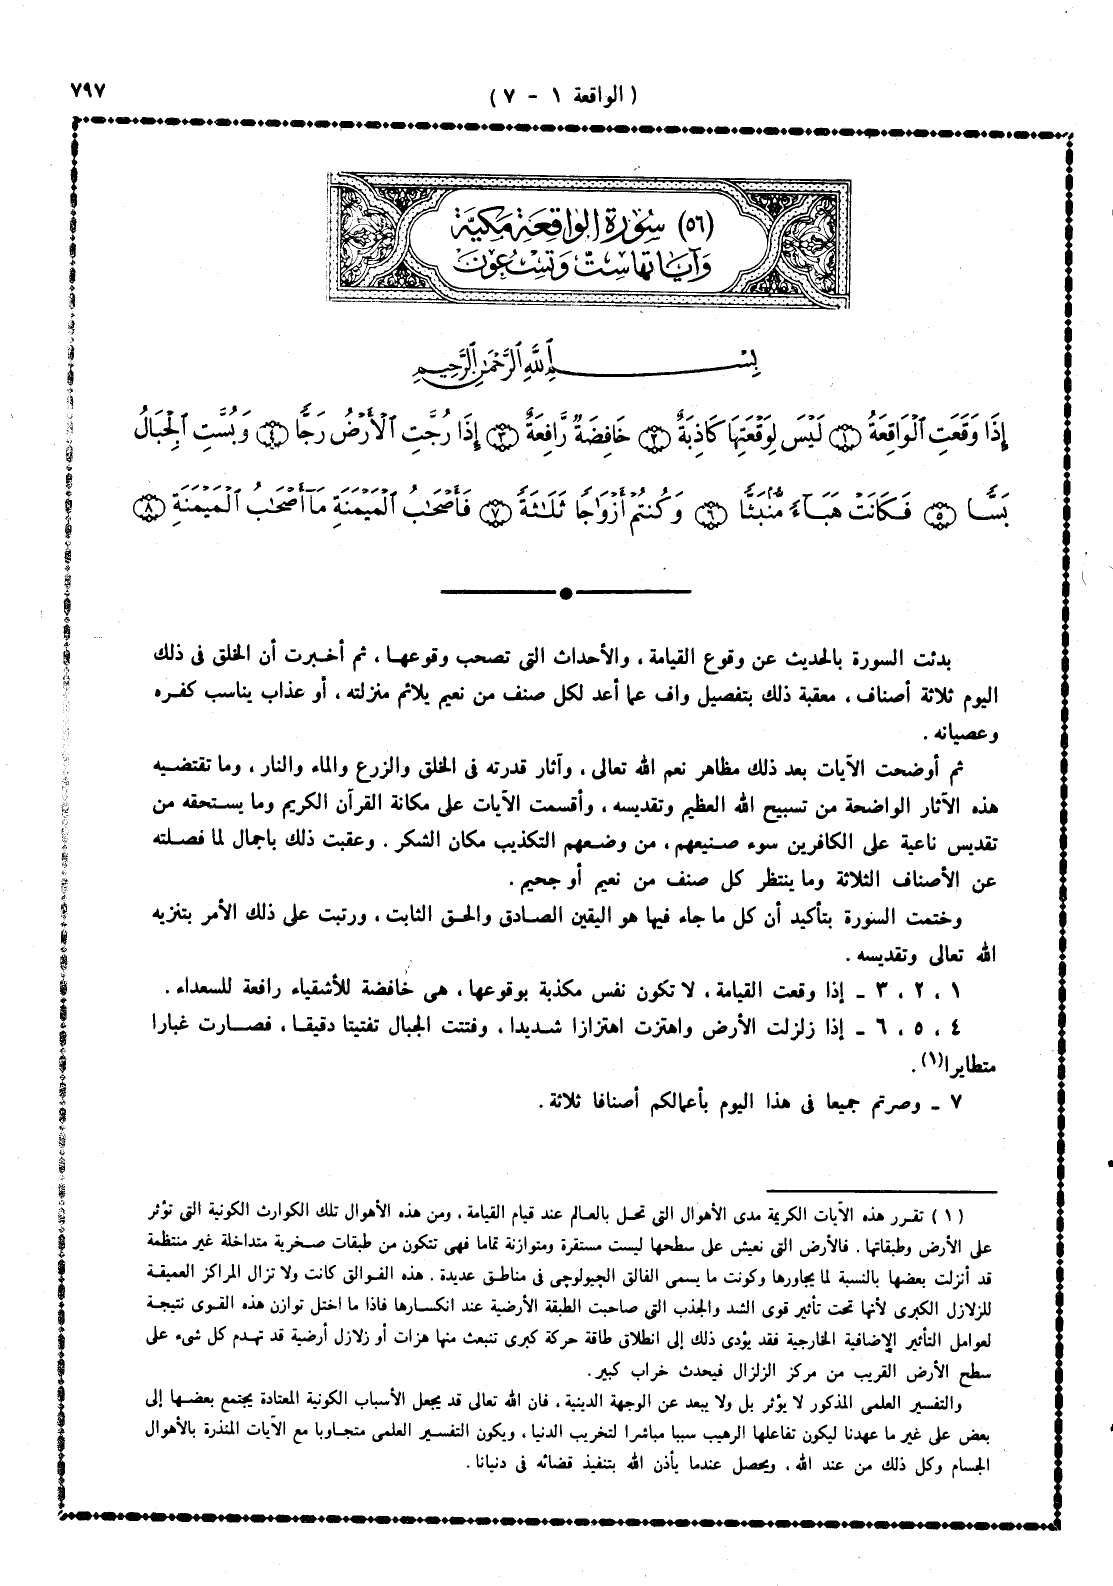 ( الواقعة ١ - ٧ )
٧٩٧
(٥٦) سُورَة الوَاقِعَة مَكيَّة
وَآيَاتهَا سِتّ وَتِسْعُونَ
بِسْمِ ٱللَّهِ ٱلرَّحْمَٰنِ ٱلرَّحِيمِ
إِذَا وَقَعَتِ ٱلْوَاقِعَةُ ﴿١﴾ لَيْسَ لِوَقْعَتِهَا كَاذِبَةٌ ﴿٢﴾ خَافِضَةٌ رَّافِعَةٌ ﴿٣﴾ إِذَا رُجَّتِ ٱلْأَرْضُ رَجًّا ﴿٤﴾ وَبُسَّتِ ٱلْجِبَالُ
بَسًّا ﴿٥﴾ فَكَانَتْ هَبَآءً مُّنۢبَثًّا ﴿٦﴾ وَكُنتُمْ أَزْوَٰجًا ثَلَٰثَةً ﴿٧﴾ فَأَصْحَٰبُ ٱلْمَيْمَنَةِ مَآ أَصْحَٰبُ ٱلْمَيْمَنَةِ ﴿٨﴾
بدئت السورة بالحديث عن وقوع القيامة ، والأحداث التى تصحب وقوعها ، ثم أخبرت أن الخلق فى ذلك
اليوم ثلاثة أصناف ، معقبة ذلك بتفصيل واف عما أعد لكل صنف من نعيم يلائم منزلته ، أو عذاب يناسب كفره
وعصيانه .
ثم أوضحت الآيات بعد ذلك مظاهر نعم الله تعالى ، وآثار قدرته فى الخلق والزرع والماء والنار ، وما تقتضيه
هذه الآثار الواضحة من تسبيح الله العظيم وتقديسه ، وأقسمت الآيات على مكانة القرآن الكريم وما يستحقه من
تقديس ناعية على الكافرين سوء صنيعهم ، من وضعهم التكذيب مكان الشكر . وعقبت ذلك باجمال لما فصلته
عن الأصناف الثلاثة وما ينتظر كل صنف من نعيم أو جحيم .
وختمت السورة بتأكيد أن كل ما جاء فيها هو اليقين الصادق والحق الثابت ، ورتبت على ذلك الأمر بتنزيه
الله تعالى وتقديسه .
١ ، ٢ ، ٣ ـ إذا وقعت القيامة ، لا تكون نفس مكذبة بوقوعها ، هى خافضة للأشقياء رافعة للسعداء .
٤ ، ٥ ، ٦ ـ إذا زلزلت الأرض واهتزت اهتزازا شديدا ، وفتتت الجبال تفتيتا دقيقا ، فصارت غبارا
متطايرا(١) .
٧ ـ وصرتم جميعا فى هذا اليوم بأعمالكم أصنافا ثلاثة .
(١) تقرر هذه الآيات الكريمة مدى الأهوال التى تحل بالعالم عند قيام القيامة ، ومن هذه الأهوال تلك الكوارث الكونية التى تؤثر
على الأرض وطبقاتها . فالأرض التى نعيش على سطحها ليست مستقرة ومتوازنة تماما فهى تتكون من طبقات صخرية متداخلة غير منتظمة
قد أنزلت بعضها بالنسبة لما يجاورها وكونت ما يسمى الفالق الچيولوچى فى مناطق عديدة . هذه الفوالق كانت ولا تزال المراكز العميقة
للزلازل الكبرى لأنها تحت تأثير قوى الشد والجذب التى صاحبت الطبقة الأرضية عند انكسارها فاذا ما اختل توازن هذه القوى نتيجة
لعوامل التأثير الإضافية الخارجية فقد يؤدى ذلك إلى انطلاق طاقة حركة كبرى تنبعث منها هزات أو زلازل أرضية قد تهدم كل شىء على
سطح الأرض القريب من مركز الزلزال فيحدث خراب كبير .
والتفسير العلمى المذكور لا يؤثر بل ولا يبعد عن الوجهة الدينية ، فان الله تعالى قد يجعل الأسباب الكونية المعتادة يجتمع بعضها إلى
بعض على غير ما عهدنا ليكون تفاعلها الرهيب سببا مباشرا لتخريب الدنيا ، ويكون التفسير العلمى متجاوبا مع الآيات المنذرة بالأهوال
الجسام وكل ذلك من عند الله ، ويحصل عندما يأذن الله بتنفيذ قضائه فى دنيانا .